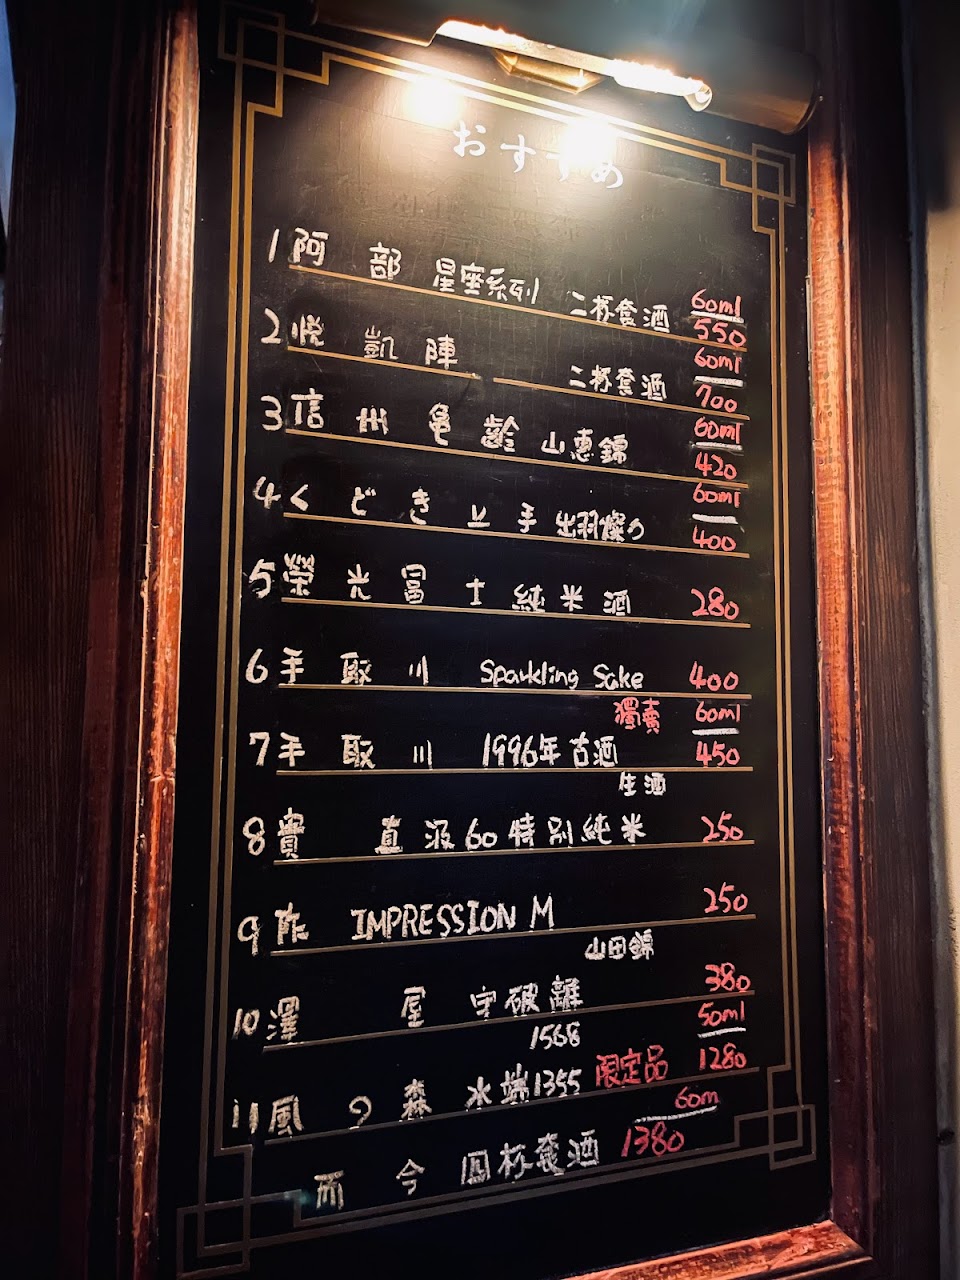 おすすめ
1 阿部 星座系列 二杯套酒 60ml 550
2 悦凱陣 二杯套酒 60ml 700
3 信州亀齢 山恵錦 60ml 420
4 くどき上手 出羽燦々 60ml 400
5 榮光冨士 純米酒 280
6 手取川 Sparkling Sake 400
獨賣 60ml
7 手取川 1996年古酒 450
生酒
8 貴 直汲60特別純米 250
9 作 IMPRESSION M 250
山田錦
10 澤屋 守破離 380
1568 50ml
11 風の森 水端1355 限定品 1280
60m
而今 四杯套酒 1380